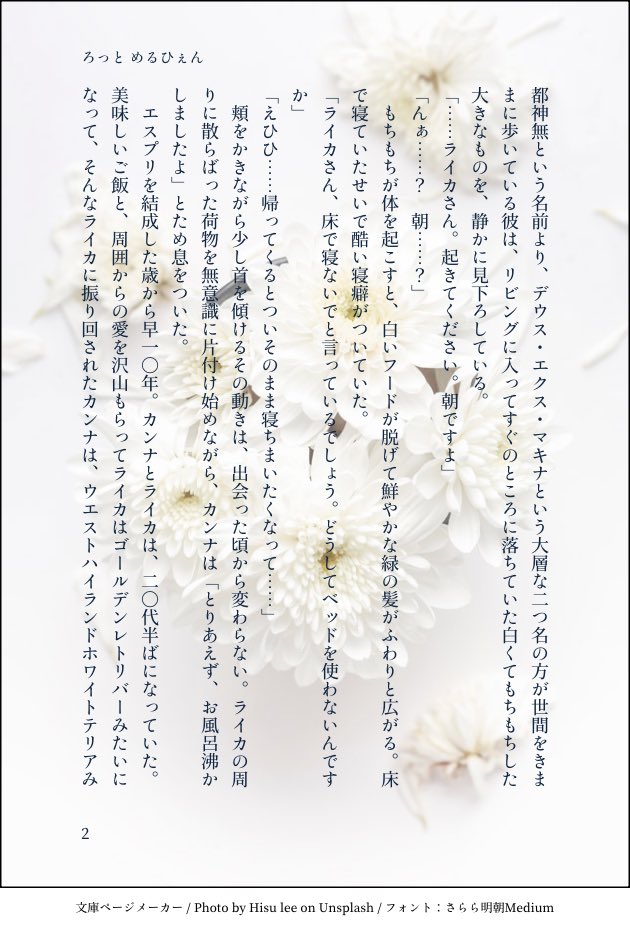 ろっと めるひぇん
都神無という名前より、デウス・エクス・マキナという大層な二つ名の方が世間をきま
まに歩いている彼は、リビングに入ってすぐのところに落ちていた白くてもちもちした
大きなものを、静かに見下ろしている。
「……ライカさん。起きてください。朝ですよ」
「んぁ……？　朝……？」
　もちもちが体を起こすと、白いフードが脱げて鮮やかな緑の髪がふわりと広がる。床
で寝ていたせいで酷い寝癖がついていた。
「ライカさん、床で寝ないでと言っているでしょう。どうしてベッドを使わないんです
か」
「えひひ……帰ってくるとついそのまま寝ちまいたくなって……」
　頬をかきながら少し首を傾けるその動きは、出会った頃から変わらない。ライカの周
りに散らばった荷物を無意識に片付け始めながら、カンナは「とりあえず、お風呂沸か
しましたよ」とため息をついた。
　エスプリを結成した歳から早一〇年。カンナとライカは、二〇代半ばになっていた。
美味しいご飯と、周囲からの愛を沢山もらってライカはゴールデンレトリバーみたいに
なって、そんなライカに振り回されたカンナは、ウエストハイランドホワイトテリアみ
2
文庫ページメーカー / Photo by Hisu lee on Unsplash / フォント：さらら明朝Medium